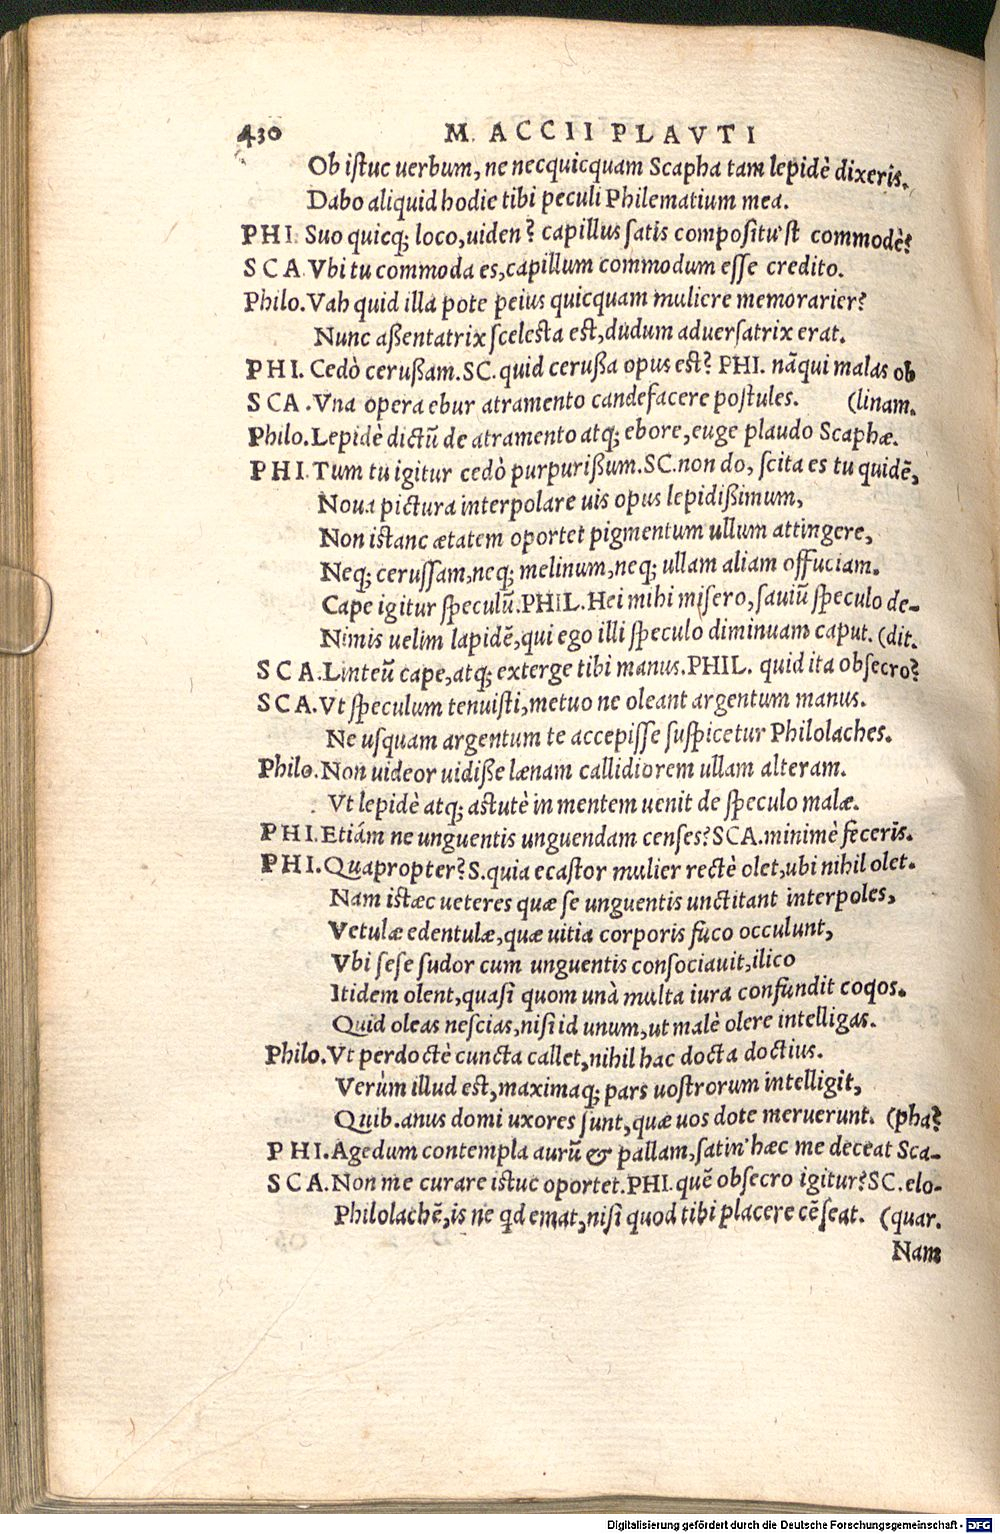 430 M. ACCII PLAVTI
Ob istuc uerbum, ne necquicquam Scapha tam lepidè dixeris.
Dabo aliquid hodie tibi peculi Philematium mea.
PHI. Suo quicq; loco, uiden? capillus satis compositu'st commodè?
SCA. Vbi tu commoda es, capillum commodum esse credito.
Philo. Vah quid illa pote peius quicquam muliere memorarier?
Nunc aßentatrix scelesta est, dudum aduersatrix erat.
PHI. Cedò cerußam. SC. quid cerußa opus est? PHI. nāqui malas ob
SCA. Vna opera ebur atramento candefacere postules. (linam.
Philo. Lepidè dictū de atramento atq; ebore, euge plaudo Scaphæ.
PHI. Tum tu igitur cedò purpurißum. SC. non do, scita es tu quidē,
Noua pictura interpolare uis opus lepidißimum,
Non istanc ætatem oportet pigmentum ullum attingere,
Neq; cerussam, neq; melinum, neq; ullam aliam offuciam.
Cape igitur speculū. PHIL. Hei mihi misero, sauiū speculo de-
Nimis uelim lapidē, qui ego illi speculo diminuam caput. (dit.
SCA. Linteū cape, atq; exterge tibi manus. PHIL. quid ita obsecro?
SCA. Vt speculum tenuisti, metuo ne oleant argentum manus.
Ne usquam argentum te accepisse suspicetur Philolaches.
Philo. Non uideor uidiße lænam callidiorem ullam alteram.
Vt lepidè atq; astutè in mentem uenit de speculo malæ.
PHI. Etiám ne unguentis unguendam censes? SCA. minimè feceris.
PHI. Quapropter? S. quia ecastor mulier rectè olet, ubi nihil olet.
Nam istæc ueteres quæ se unguentis unctitant interpoles,
Vetulæ edentulæ, quæ uitia corporis fuco occulunt,
Vbi sese sudor cum unguentis consociauit, ilico
Itidem olent, quasi quom unà multa iura confundit coqos.
Quid oleas nescias, nisi id unum, ut malè olere intelligas.
Philo. Vt perdoctè cuncta callet, nihil hac docta doctius.
Verùm illud est, maximaq; pars uostrorum intelligit,
Quib. anus domi uxores sunt, quæ uos dote meruerunt. (pha?
PHI. Agedum contempla aurū & pallam, satin' hæc me deceat Sca-
SCA. Non me curare istuc oportet. PHI. quē obsecro igitur? SC. elo-
Philolachē, is ne qd emat, nisi quod tibi placere cēseat. (quar.
Nam
Digitalisierung gefördert durch die Deutsche Forschungsgemeinschaft - DFG